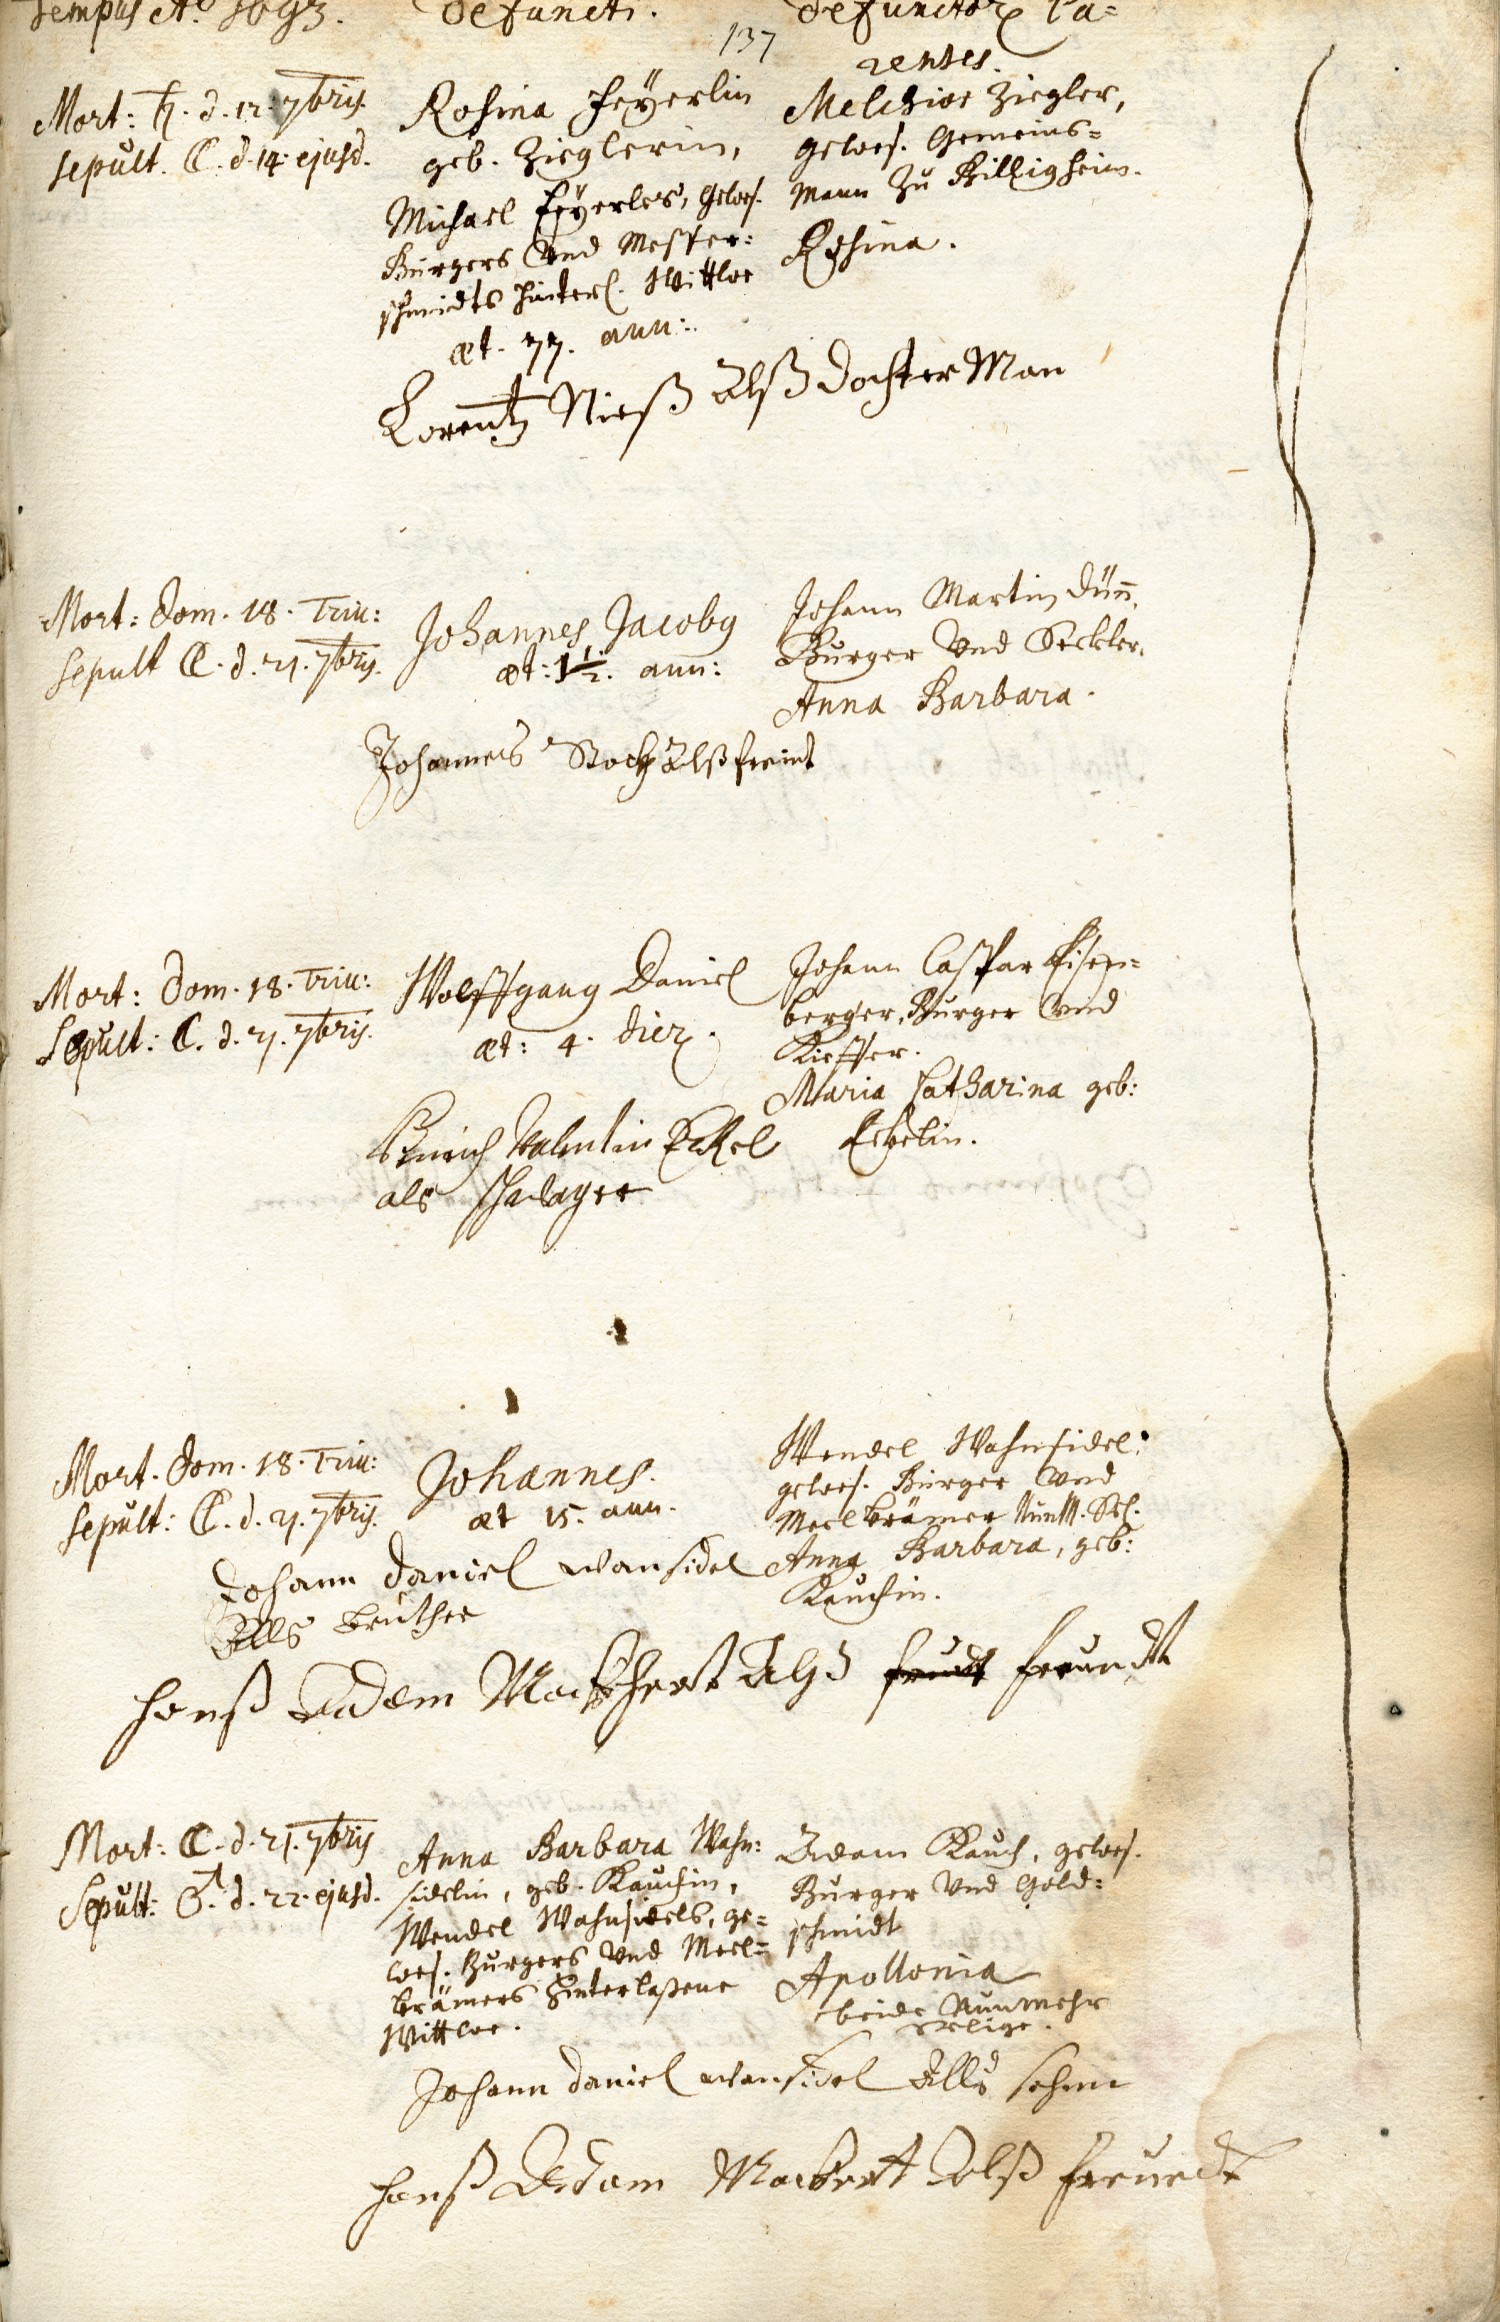 Tempus Aº 1693. Defuncti. Defunctorꝝ Pa=
137
rentes.
Mort: ♄. d. 12. 7bris.
Sepult. ☾. d. 14. ejusd.
Rosina Feÿerlin
geb. Zieglerin,
Michael Feÿerles, gewes.
Burgers Vnd Messer=
schmidts hinterl. Wittwe
æt. 77. ann:
Melchior Ziegler,
gewes. Gemeins=
Mann Zu Billigheim.
Rosina.
Lorentz Nieß Alß dochter Man
Mort: Dom. 18. Trin:
Sepult ☾. d. 21. 7bris.
Johannes Jacoby
æt: 1½. ann:
Johann Martin Dünn,
Burger Vnd Seckler.
Anna Barbara.
Johannes Stock Alß freint
Mort: Dom. 18. Trin:
Sepult: ☾. d. 21. 7bris.
Wolffgang Daniel
æt: 4. dierꝝ.
Johann Caspar Eisen=
berger, Burger Vnd
Kieffer.
Maria Catharina geb:
Eckelin.
Henrich Valentin Eckel
als schwager
Mort. Dom. 18. Trin:
Sepult: ☾. d. 21. 7bris.
Johannes.
æt 15. ann.
Wendel Wahnsidel,
gewes. Burger Vnd
Meelkrämer Nunm. Sel.
Anna Barbara, geb:
Kauchin.
Johann Daniel wansidel
Alls bruther
Hanß Adam Alß freundt
Mort: ☾. d. 21. 7bris
Sepult: ♂. d. 22. ejusd.
Anna Barbara Wahn=
sidelin, geb. Kauchin,
Wendel Wahnsidels, ge=
wes. Burgers Vnd Meel=
krämers hinterlaßene
Wittwe.
Adam Kauch, gewes.
Burger Vnd Gold=
schmidt
Apollonia
beide Nunmehr
seelige.
Johann Daniel wansidel Alls sohnn
Hanß Adam Mackert Alß freundt